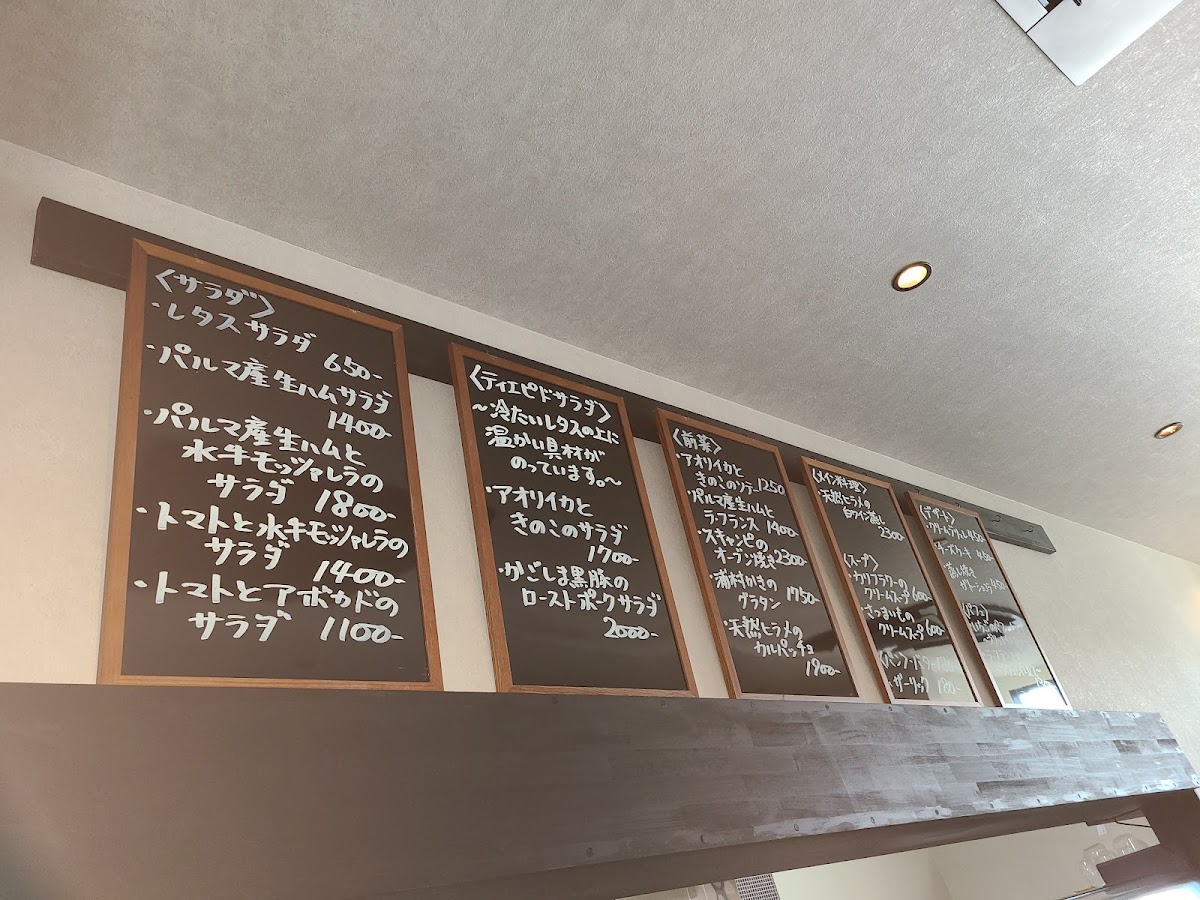 〈サラダ〉
・レタスサラダ 650-
・パルマ産生ハムサラダ
1400-
・パルマ産生ハムと
水牛モッツァレラの
サラダ 1800-
・トマトと水牛モッツァレラの
サラダ 1400-
・トマトとアボカドの
サラダ 1100-
〈ティエピドサラダ〉
〜冷たいレタスの上に
温かい具材が
のっています。〜
・アオリイカと
きのこのサラダ
1700-
・かごしま黒豚の
ローストポークサラダ
2000-
〈前菜〉
・アオリイカと
きのこのソテー 1250
・パルマ産生ハムと
ラ・フランス 1400-
・スキャンピの
オーブン焼き 2300-
・浦村かきの
グラタン 1750-
・天然ヒラメの
カルパッチョ
1900-
〈メイン料理〉
・天然ヒラメの
白ワイン蒸し
2300-
〈スープ〉
・カリフラワーの
クリームスープ 600-
・さつまいもの
クリームスープ 600-
ガーリック 180-
〈デザート〉
・クリームブリュレ 450-
・チーズケーキ 450-
蒸し焼き
ガトーショコラ 450
〈パフェ〉